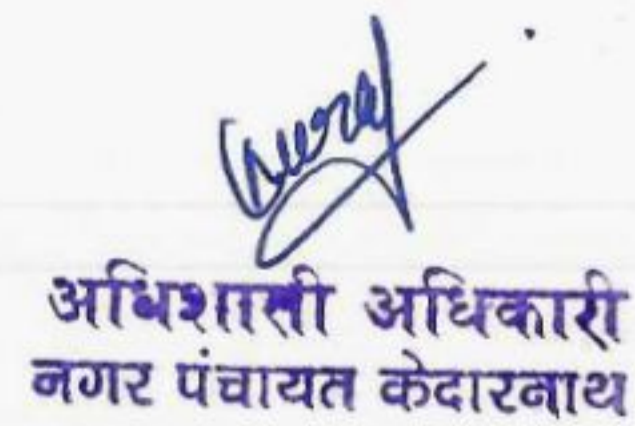 अधिशासी अधिकारी
नगर पंचायत केदारनाथ